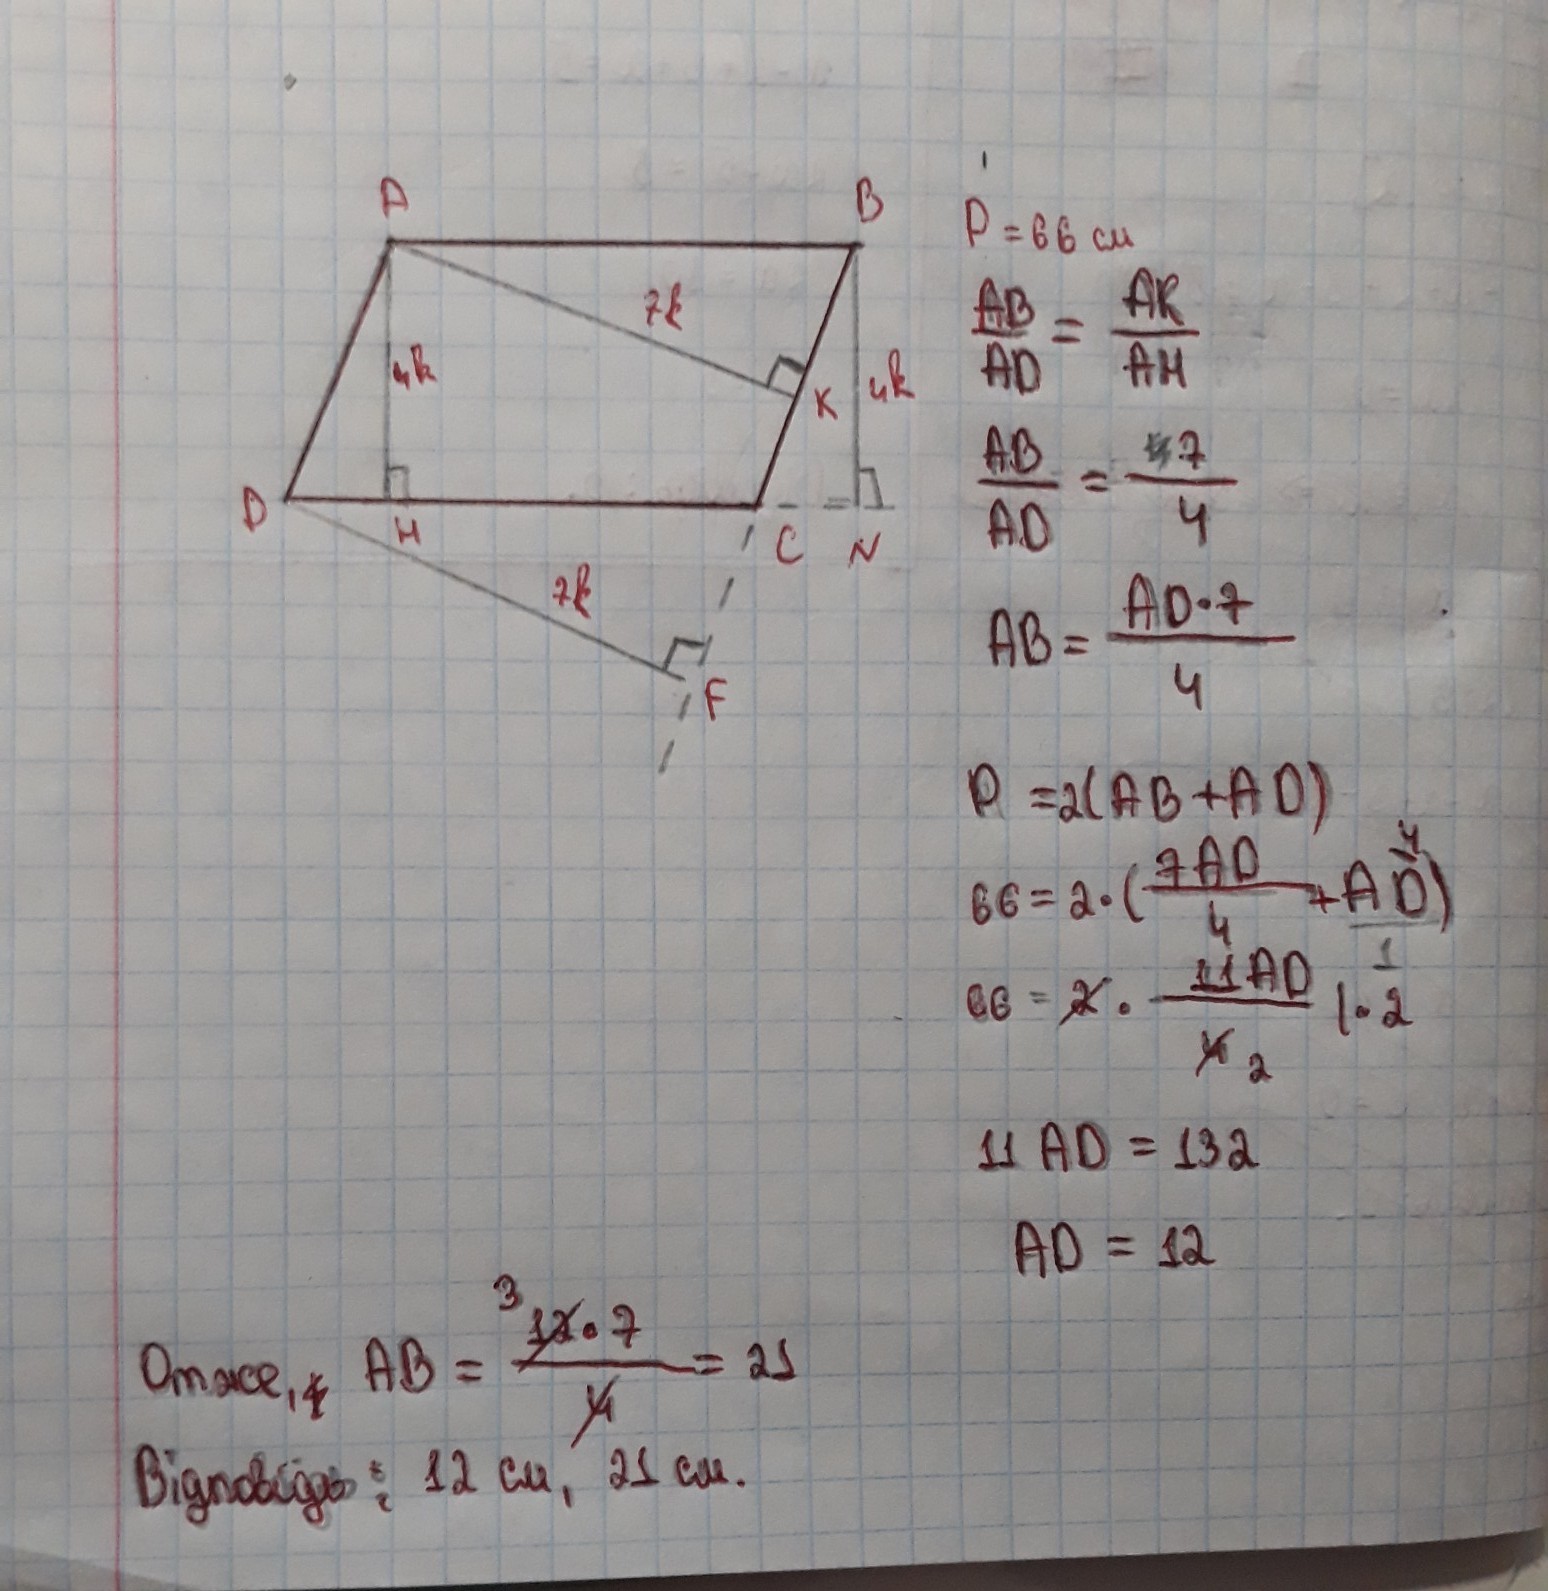 A
B
7k
4k
K
4k
D
H
C
N
7k
F
P = 66 см
AB/AD = AK/AH
AB/AD = 7/4
AB = AD·7/4
P = 2(AB + AD)
66 = 2·(7AD/4 + AD/1) 4
66 = 2 · 11AD/4 2 |·2
11 AD = 132
AD = 12
Отже, AB = 3 12·7/4 = 21
Відповідь: 12 см, 21 см.